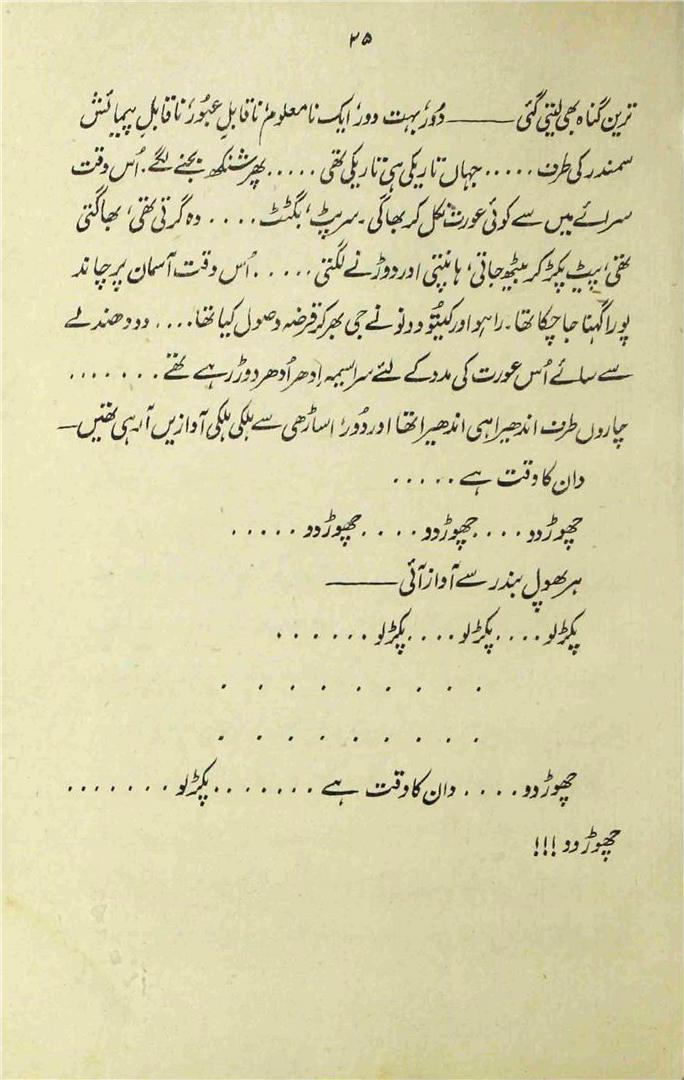 ۲۵
ترین گناہ بھی لیتی گئی ——— دُور، بہت دور، ایک نامعلوم، ناقابلِ عبُور، ناقابلِ پیمائش
سمندر کی طرف ..... جہاں تاریکی ہی تاریکی تھی ..... پھر شنکھ بجنے لگے۔ اُس وقت
سرائے میں سے کوئی عورت نکل کر بھاگی۔ سرپٹ، بگٹٹ .... وہ گرتی تھی، بھاگتی
تھی، پیٹ پکڑ کر بیٹھ جاتی، ہانپتی اور دوڑنے لگتی ..... اُس وقت آسمان پر چاند
پورا گہنا جا چکا تھا۔ راہو اور کیتُو دونو نے جی بھر کر قرضہ وصول کیا تھا .... دو دھندلے
سے سائے اُس عورت کی مدد کے لئے سراسیمہ اِدھر اُدھر دوڑ رہے تھے .......
چاروں طرف اندھیرا ہی اندھیرا تھا اور دُور، اساڑھی سے ہلکی ہلکی آوازیں آ رہی تھیں —
دان کا وقت ہے .....
چھوڑ دو .... چھوڑ دو .... چھوڑ دو .....
ہر پھول بندر سے آواز آئی ———
پکڑ لو .... پکڑ لو .... پکڑ لو ......
. . . . . . . . .
. . . . . . . . .
چھوڑ دو .... دان کا وقت ہے ....... پکڑ لو .......
چھوڑ دو !!!